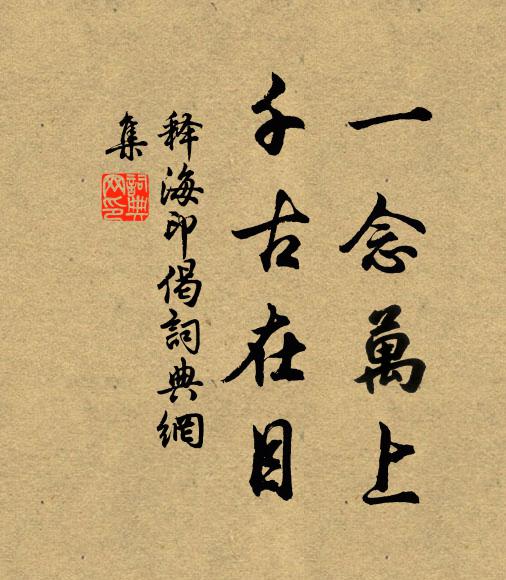 一念萬上
千古在目
释海印偈詞典網
集
詞典
网印